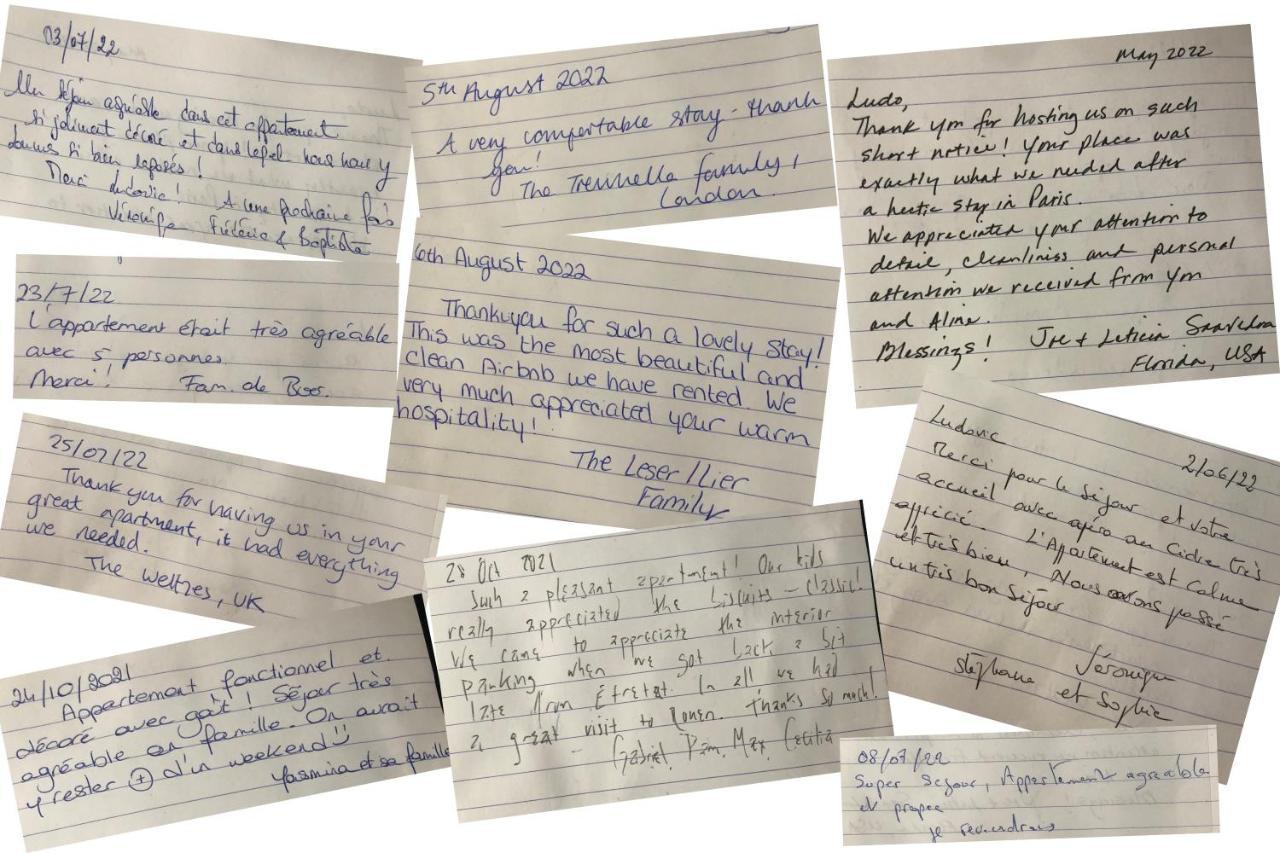 03/07/22
Un séjour agréable dans cet appartement
si joliment décoré et dans lequel nous nous y
sommes si bien reposés !
Merci Ludovic ! A une prochaine fois
Véronique Frédéric & Baptiste
5th August 2022
A very comfortable stay - thank
you!
The Trennella family,
London.
May 2022
Ludo,
Thank you for hosting us on such
short notice! Your place was
exactly what we needed after
a hectic stay in Paris.
We appreciated your attention to
detail, cleanliness and personal
attention we received from you
and Aline.
Blessings! Joe + Leticia Saavedra
Florida, USA
23/7/22
L'appartement était très agréable
avec 5 personnes
Merci! Fam. de Boos.
6th August 2022
Thankyou for such a lovely stay!
This was the most beautiful and
clean Airbnb we have rented. We
very much appreciated your warm
hospitality!
The Leser/Lier
Family
25/07/22
Thank you for having us in your
great apartment, it had everything
we needed.
The Weltzes, UK
Ludovic
2/06/22
Merci pour le séjour et votre
accueil avec apéro au cidre très
apprécié. L'Appartement est calme
et très bien, Nous avons passé
un très bon séjour
Véronique
Stéphane et Sophie
28 Oct 2021
Such a pleasant apartment! Our kids
really appreciated the biscuits - classic!
We came to appreciate the interior
parking when we got back a bit
late from Étretat. In all we had
a great visit to Rouen. Thanks so much!
- Gabriel Pam Max Cecilia
24/10/2021
Appartement fonctionnel et
décoré avec goût ! Séjour très
agréable en famille. On aurait
y rester + d'un weekend
Yasmina et sa famille
08/07/22
Super Sejour, Appartement agreable
et propre
je reviendrais